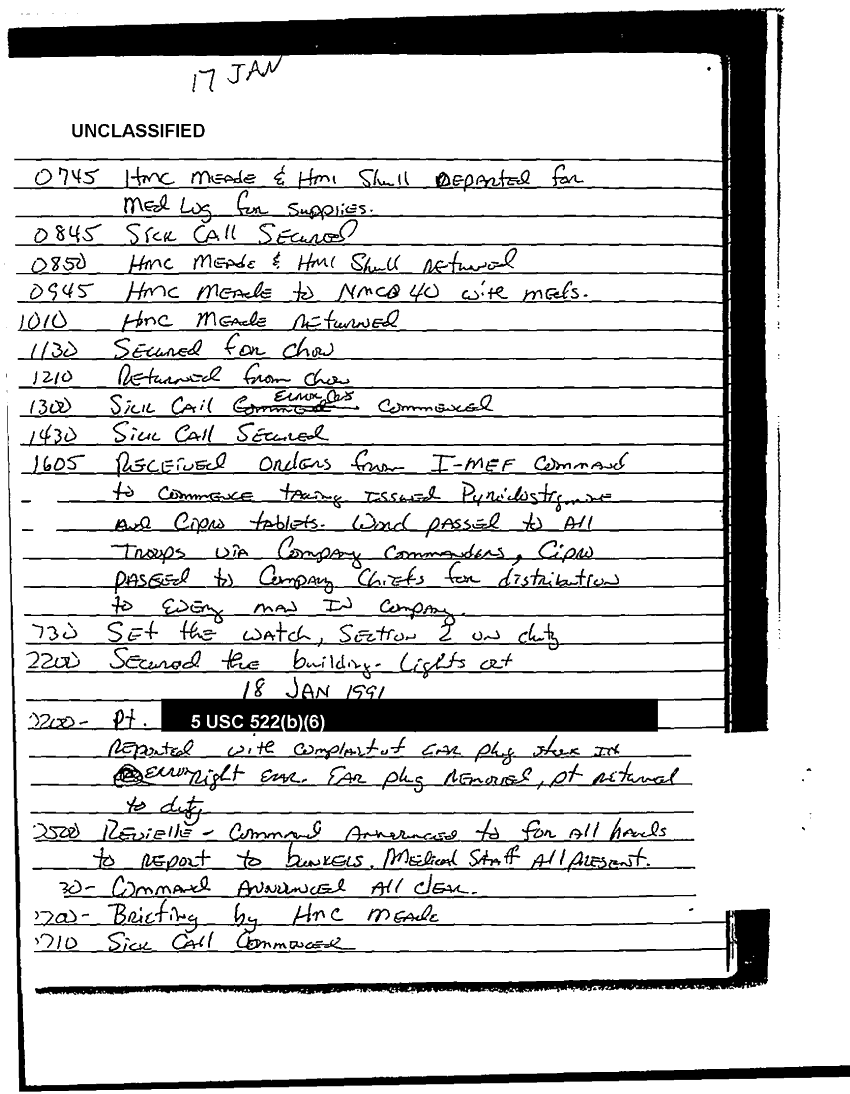 17 JAN
UNCLASSIFIED
0745 HMC MEADE & HM1 Shull DEPARTED for
MED Log for supplies.
0845 SICK CALL SECURED
0850 HMC MEADE & HM1 Shull RETURNED
0945 HMC MEADE to NMCB 40 with meds.
1010 HMC MEADE RETURNED
1130 SECURED for Chow
1210 RETURNED from Chow
1300 SICK CALL COMMENCED
1430 SICK CALL SECURED
1605 RECEIVED ORDERS from I-MEF COMMAND
to COMMENCE taking ISSUED Pyridostigmine
AND CIPRO tablets. Word PASSED to All
TROOPS VIA Company Commanders, CIPRO
PASSED to Company Chiefs for distribution
to EVERY MAN IN Company.
730 SET the WATCH, SECTION 2 on duty
2200 Secured the building. Lights out
18 JAN 1991
0200- Pt. 5 USC 522(b)(6)
REPORTED with complaint of EAR plug stuck IN
error right EAR. EAR plug REMOVED, pt returned
to duty
0500 REVIELLE - COMMAND Announced to for All hands
to REPORT to bunkers. Medical Staff All PRESENT.
30- COMMAND ANNOUNCED All clear.
0700- Briefing by HMC MEADE
0710 SICK CALL COMMENCED